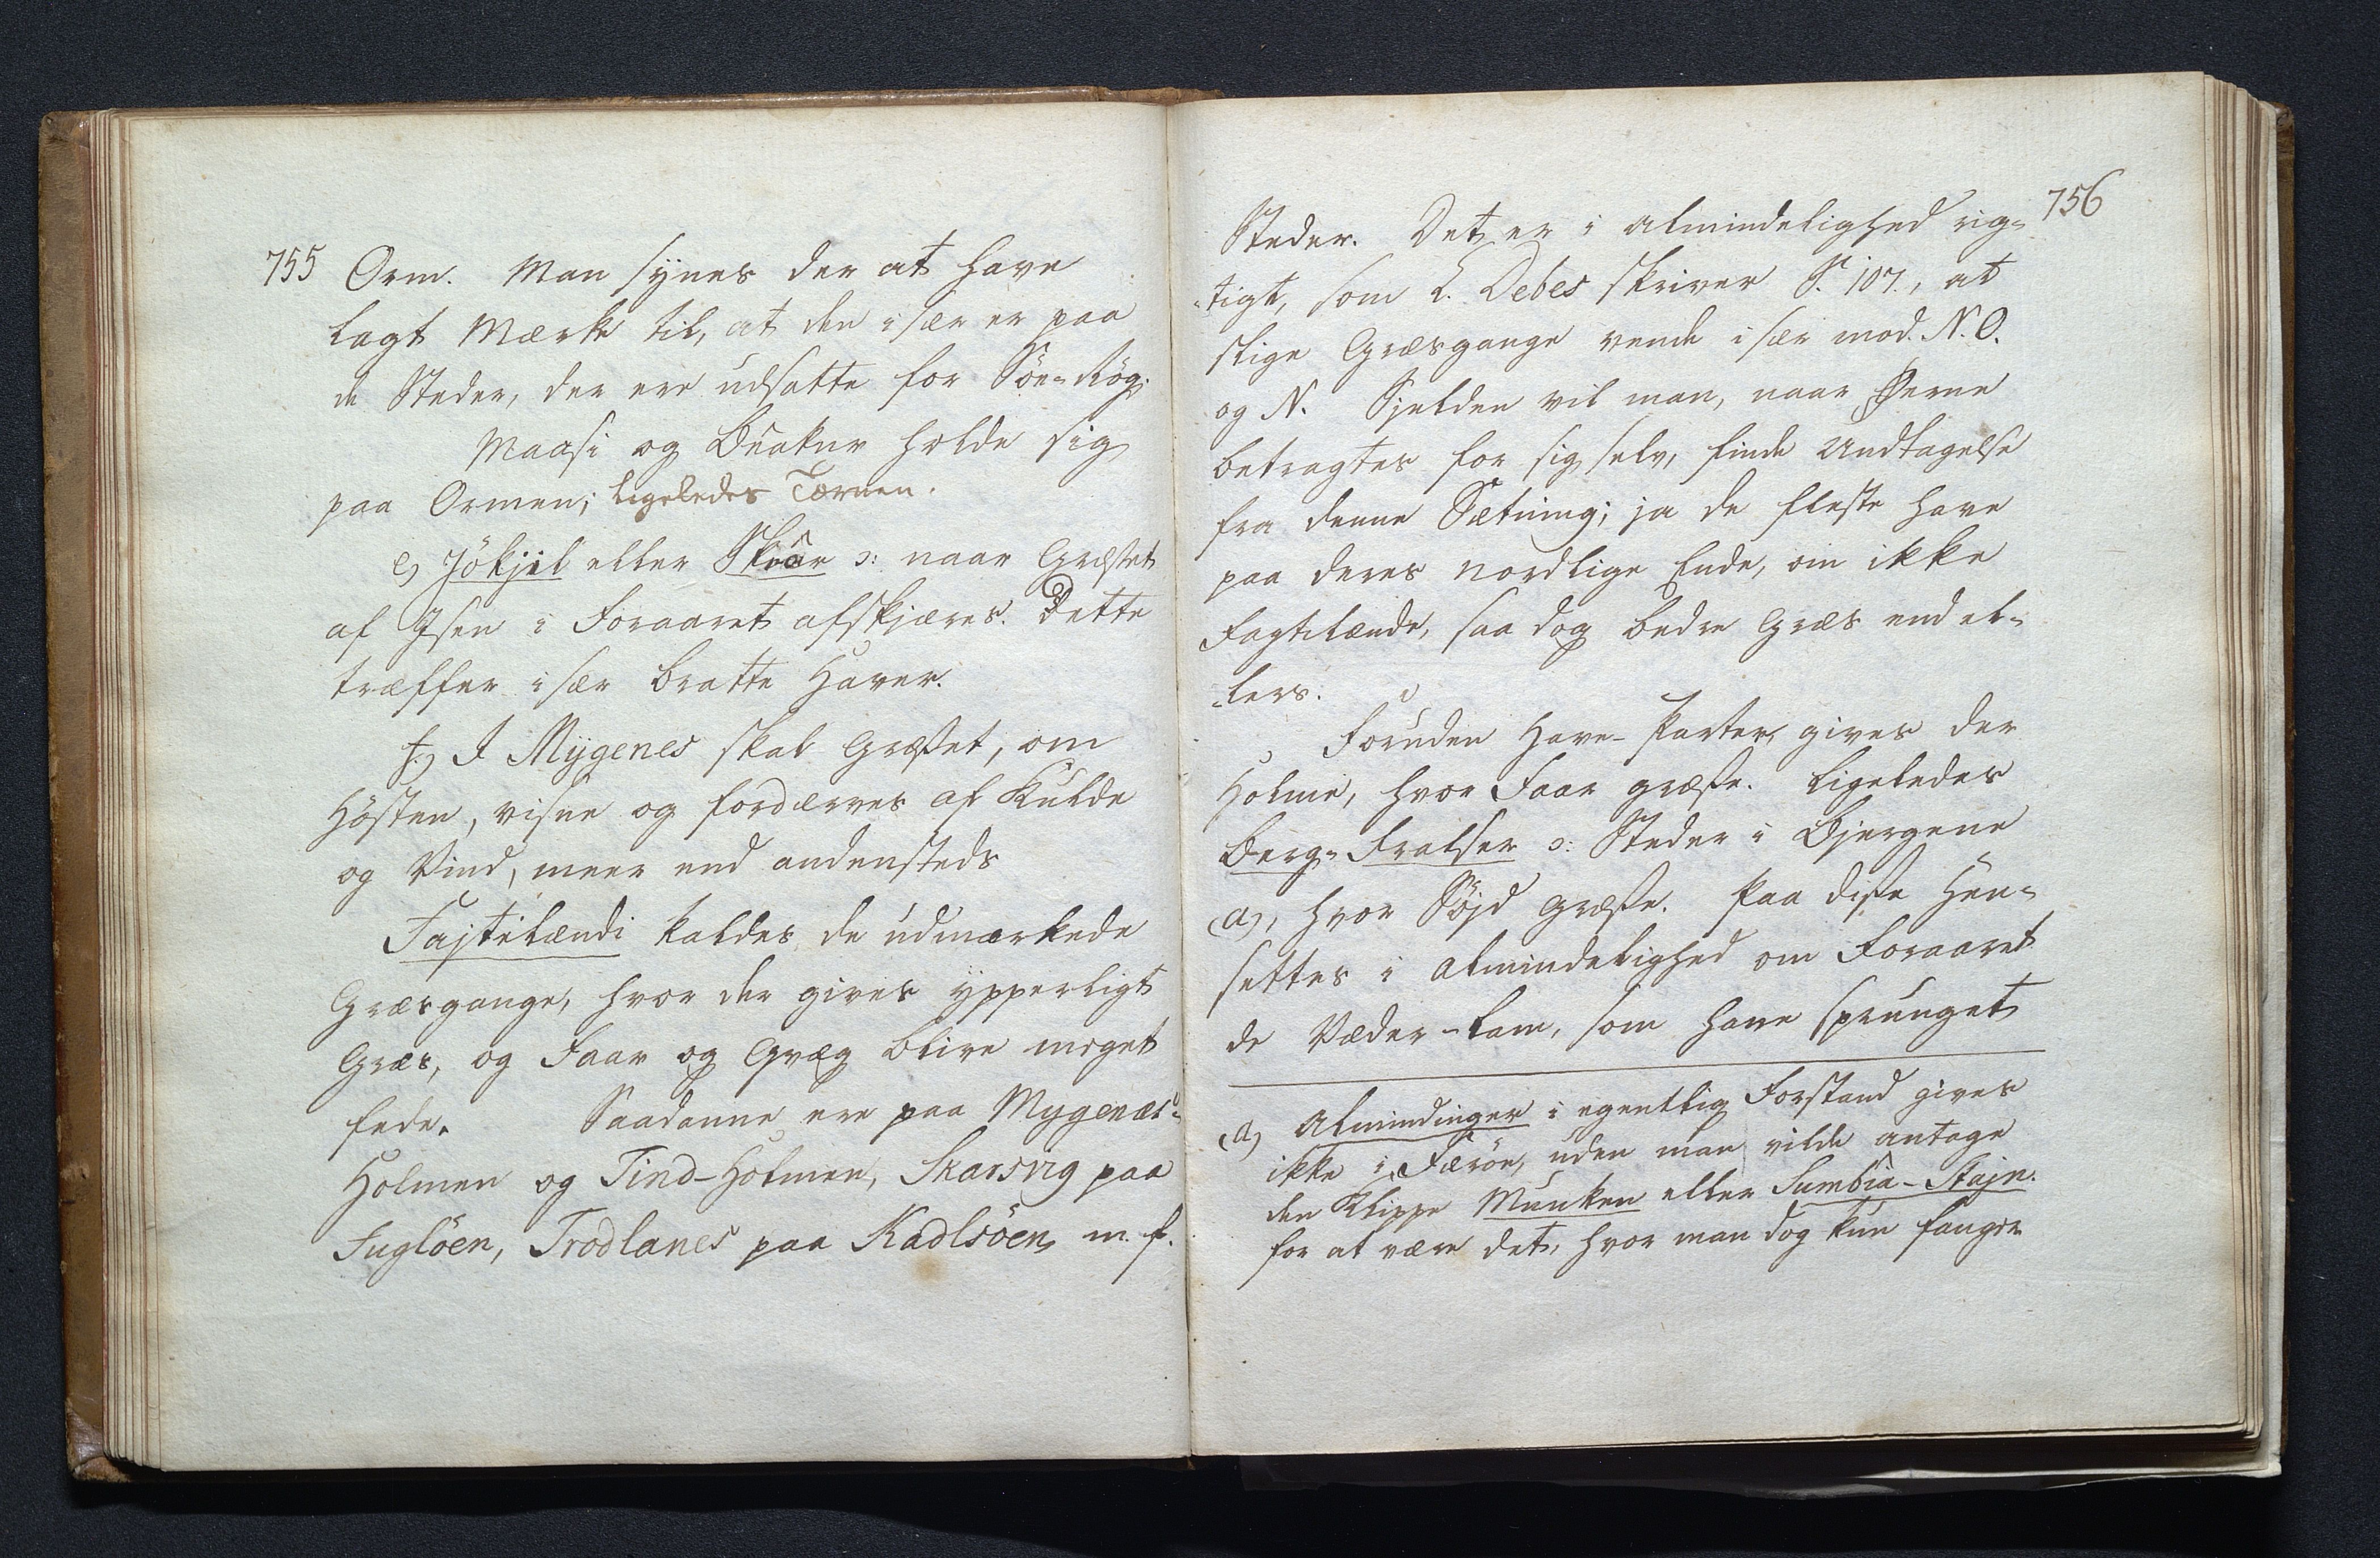 755
Orm. Man synes der at have
lagt Mærke til, at den især er paa
de Steder, der ere udsatte for Söe-Røg.
Maasi og Qvakur holde sig
paa Ormen; ligeledes Tærnen.
e) Jökjil eller Skoar ɔ: naar Græsset
af Isen i Foraaret afskjæres. Dette
træffer især bratte Haver.
f.) I Mygenes skal Græsset, om
Hösten, visne og fordærves af Kulde
og Vind, meer end andensteds
Fajtilændi kaldes de udmærkede
Græsgange, hvor der gives ypperligt
Græs, og Faar og Qvæg blive meget
fede. Saadanne ere paa Mygenæs-
Holmen og Tind-Holmen, Skarsvig paa
Fuglöen, Trodlanes paa Kadlsöen m. fl.
756
Steder. Det er i Almindelighed rig-
-tigt, som L. Debes skriver S. 107., at
slige Græsgange vende især mod N.O.
og N. Sjelden vil man, naar Øerne
betragtes for sig selv, finde Undtagelse
fra denne Sætning; ja de fleste have
paa deres nordlige Ende, om ikke
Fagtilænde, saa dog bedre Græs end el-
-lers.
Foruden Have-Parter, gives der
Holme, hvor Faar græsse. Ligeledes
Berg-Fralser ɔ: Steder i Bjergene
(a), hvor Søjd græsse. Paa disse hen-
settes i Almindelighed om Foraaret
de Væder-Lam, som have sprunget
(a) Almindinger i egentlig Forstand gives
ikke i Færöe, uden man vilde antage
den Klippe Munken eller Sumbia-Stajn.
for at være det, hvor man dog kun fanger